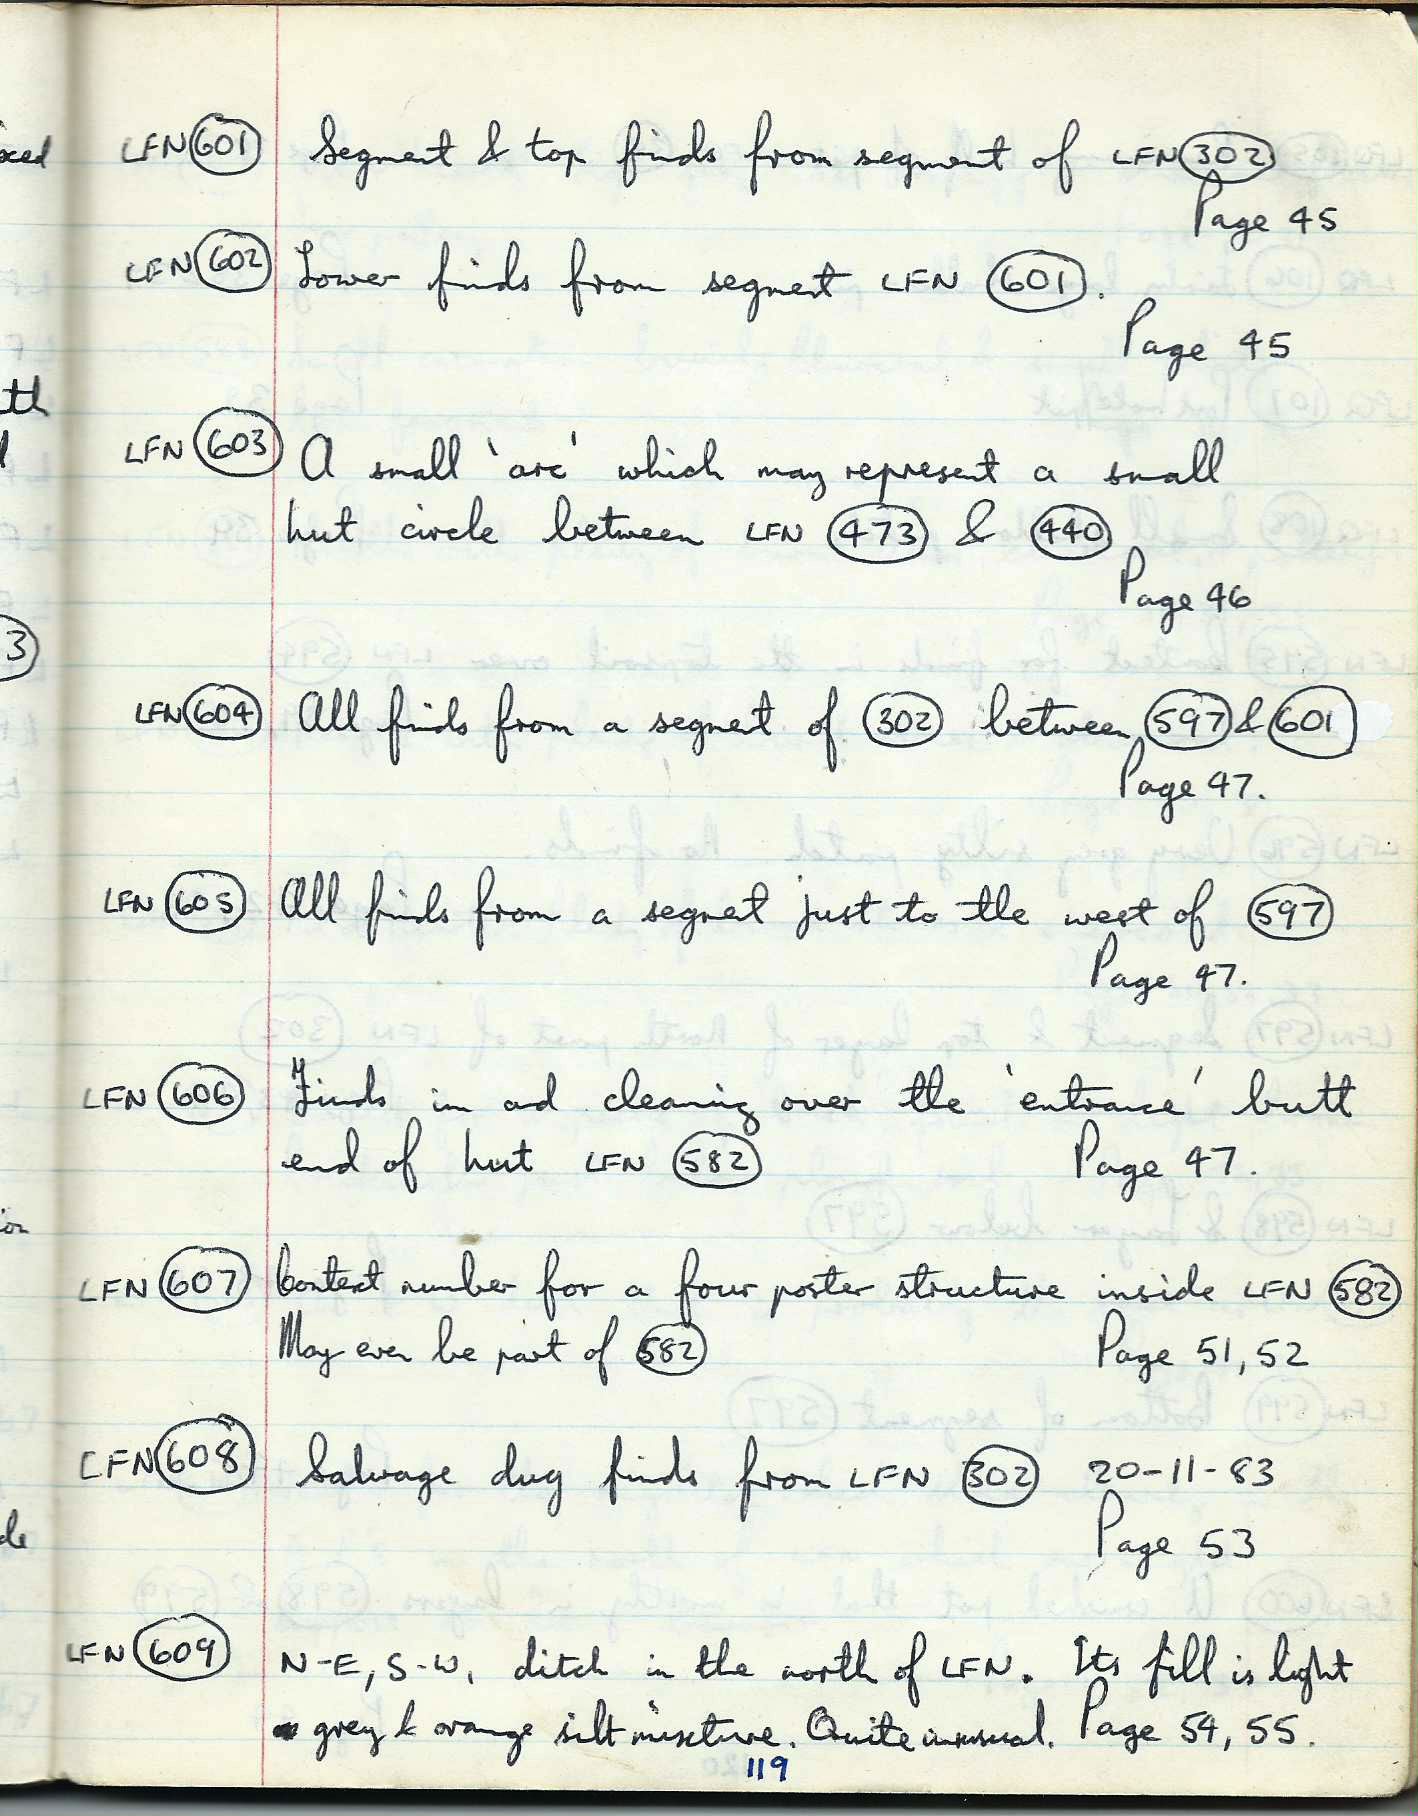 LFN 601 Segment & top finds from segment of LFN 302
Page 45
LFN 602 Lower finds from segment LFN 601.
Page 45
LFN 603 A small 'arc' which may represent a small
hut circle between LFN 473 & 440
Page 46
LFN 604 All finds from a segment of 302 between 597 & 601
Page 47.
LFN 605 All finds from a segmet just to the west of 597
Page 47.
LFN 606 Finds in and cleaning over the 'entrance' butt
end of hut LFN 582 Page 47.
LFN 607 Context number for a four poster structure inside LFN 582
May even be part of 582 Page 51, 52
LFN 608 Salvage dug finds from LFN 302 20-11-83
Page 53
LFN 609 N-E, S-W, ditch in the north of LFN. Its fill is light
grey & orange silt mixture. Quite unusual. Page 54, 55.
119